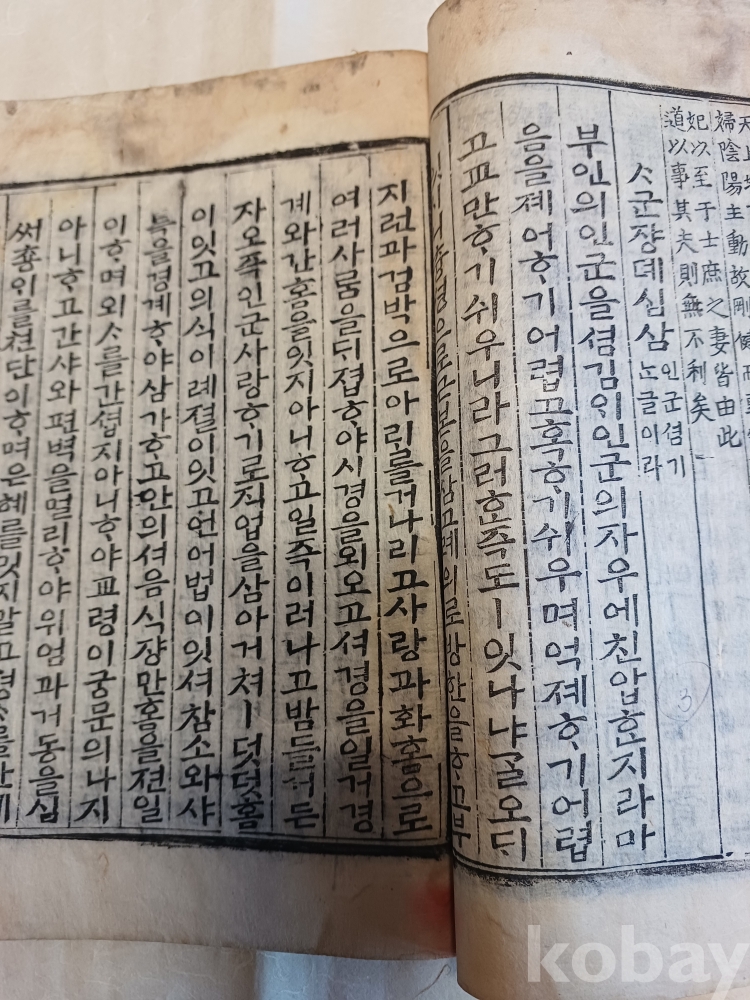 婦陰陽主動故剛健而
妃以至于士庶之妻皆由此
道以事其夫則無不利矣
ᄉᆞ군쟝뎨십삼
인군셤기
ᄂᆞᆫ글이라
부인의인군을셤김위인군의자우에친압ᄒᆞᆫ지라마
음을졔어ᄒᆞ기어렵고혹ᄒᆞ기쉬우며억졔ᄒᆞ기어렵
고교만ᄒᆞ기쉬우니라그러ᄒᆞᆫ즉도ㅣ잇나냐ᄀᆞᆯ오ᄃᆡ
으로근본을삼고례의로방한을ᄒᆞ고부
지런과검박으로아ᄅᆡ를거나리고사랑과화홈으로
여러사ᄅᆞᆷ을ᄃᆡ졉ᄒᆞ야시경을외오고셔경을일거경
계와간홈을잇지아니ᄒᆞ고일즉이러나고밤들거든
자오쪽인군사랑ᄒᆞ기로직업을삼아거쳐ㅣ덧덧홈
이잇고의식이례졀이잇고언어법이잇셔참소와샤
특을경계ᄒᆞ야삼가ᄒᆞ고안의셔음식쟝만홈을젼일
이ᄒᆞ며외ᄉᆞ를간셥지아니ᄒᆞ야교령이궁문의나지
아니ᄒᆞ고간샤와편벽을멀리ᄒᆞ야위엄과거동을심
써춍위를쳔단이ᄒᆞ며은혜를밋지말고